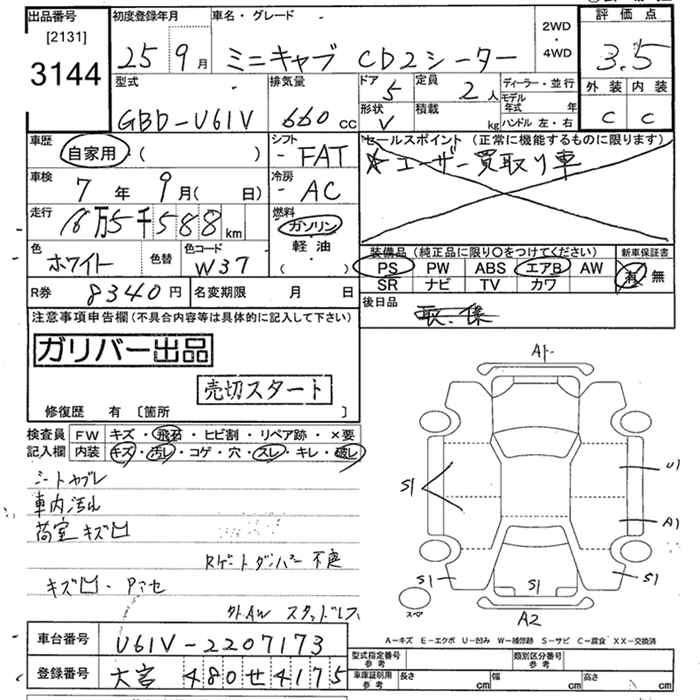 出品番号 [2131] 3144
初度登録年月 25 9月
車名・グレード ミニキャブ CD2シーター
2WD・4WD
評価点 3.5
外装 C 内装 C
型式 GBD-U61V
排気量 660cc
ドア 5
定員 2人
形状 V
積載 kg
ディーラー・並行
モデル年式 年
ハンドル 左・右
車歴 自家用・( )
シフト - FAT
車検 7年 9月( 日)
冷房 - AC
走行 16万5千588km
燃料 ガソリン 軽油 ( )
色 ホワイト 色替
色コード W37
R券 8340円
名変期限 月 日
セールスポイント (正常に機能するものに限ります)
☆ユーザー買取り車
装備品 (純正品に限り○をつけてください)
PS PW ABS エアB AW
SR ナビ TV カワ
新車保証書 有 無
後日品
注意事項申告欄(不具合内容等は具体的に記入して下さい)
ガリバー出品
売切スタート
修復歴 有 [箇所 ]
検査員記入欄
FW キズ・飛石・ヒビ割・リペア跡・×要
内装 キズ・汚レ・コゲ・穴・スレ・キレ・破レ
シートヤブレ
車内汚れ
荷室キズ凹
Rゲートダンパー不良
キズ凹・アセ
外AW スタッドレス
A1
S1
U1
A1
S1
S1
S1
スペア
A2
A-キズ E-エクボ U-凹み W-補修跡 S-サビ C-腐食 XX-交換済
車台番号 U61V-2207173
登録番号 大宮 480 せ 4175
型式指定番号 参考
類別区分番号 参考
車庫証明用 参考 長さ cm 幅 cm 高さ cm